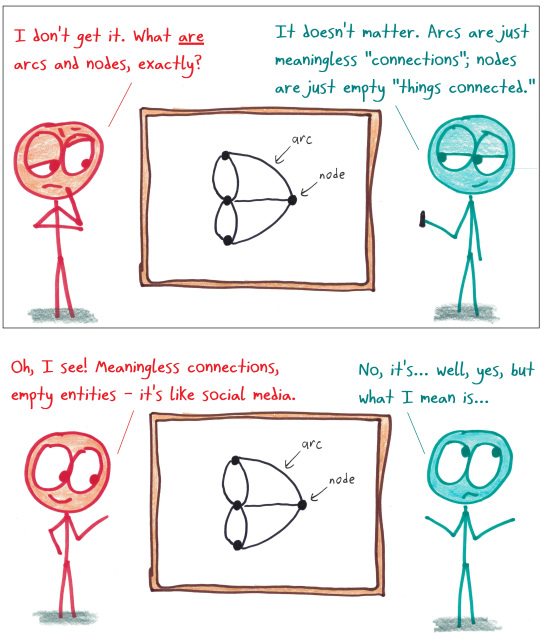 I don't get it. What are
arcs and nodes, exactly?
It doesn't matter. Arcs are just
meaningless "connections"; nodes
are just empty "things connected."
arc
node
Oh, I see! Meaningless connections,
empty entities – it's like social media.
No, it's... well, yes, but
what I mean is...
arc
node